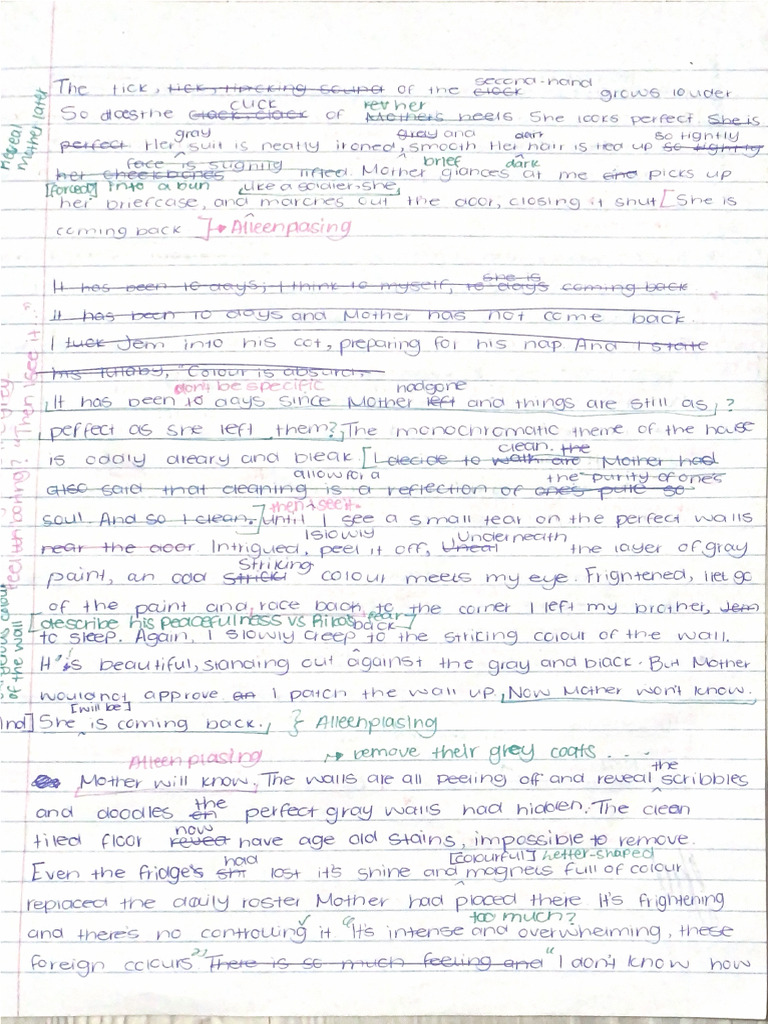 second-hand
The tick, tick, tircking sound of the clock grows louder
click rev her
So does the clack clack of Mothers heels She looks perfect. She is
Reveal mother later
gray gray and so tightly
perfect Her suit is neatly ironed, smooth Her hair is tied up so tightly
face is slightly brief dark
her cheekbones lifted. Mother glances at me and picks up
[forced] into a bun like a soldier, she
her briefcase, and marches out the door, closing it shut [She is
coming back ] → Alleenplasing
she is
It has been 10 days; I think to myself, 10 days coming back
It has been 10 days and Mother has not come back.
I tuck Jem into his cot, preparing for his nap And I state
his lullaby, "Colour is absurd."
don't be specific had gone
It has been 10 days since Mother left and things are still as, ?
perfect as she left them?, The monochromatic theme of the house
clean. the
is oddly dreary and bleak [I decide to wash are Mother had
allow for a the purity of ones
also said that cleaning is a reflection of ones pure so
then I see it.
soul. And so I clean.] Until I see a small tear on the perfect walls
I slowly Underneath
near the door Intrigued, peel it off, Unreal the layer of gray
Striking
paint, an odd colour meets my eye. Frightened, I let go
of the paint and race back to the corner I left my brother, Jem
[describe his peacefulness vs fear]
back
to sleep. Again, I slowly creep to the striking colour of the wall.
It's beautiful, standing out against the gray and black. But Mother
would not approve I patch the wall up, Now Mother won't know.
[will be]
She is coming back., } Alleenplasing
"Then I see it..."
colour of the wall
Alleenplasing → remove their grey coats ....
the
Mother will know, The walls are all peeling off and reveal scribbles
the
and doodles perfect gray walls had hidden. The clean
now
tiled floor reveal have age old stains, impossible to remove.
had [colourful] letter-shaped
Even the fridge's lost it's shine and magnets full of colour
replaced the daily roster Mother had placed there It's frightening
too much?
and there's no controlling it "It's intense and overwhelming, these
foreign colours" There is so much feeling and "I don't know how